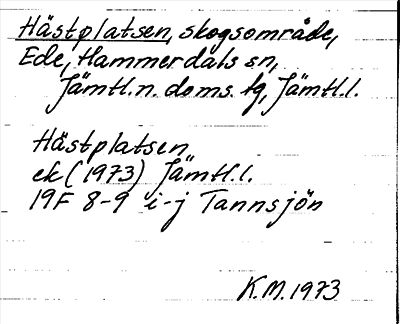 Hästplatsen, skogsområde,
Ede, Hammerdals sn,
Jämtl. n. doms. tg, Jämtl. l.
Hästplatsen
ek (1973) Jämtl. l.
19F 8-9 i-j Tannsjön
K.M. 1973